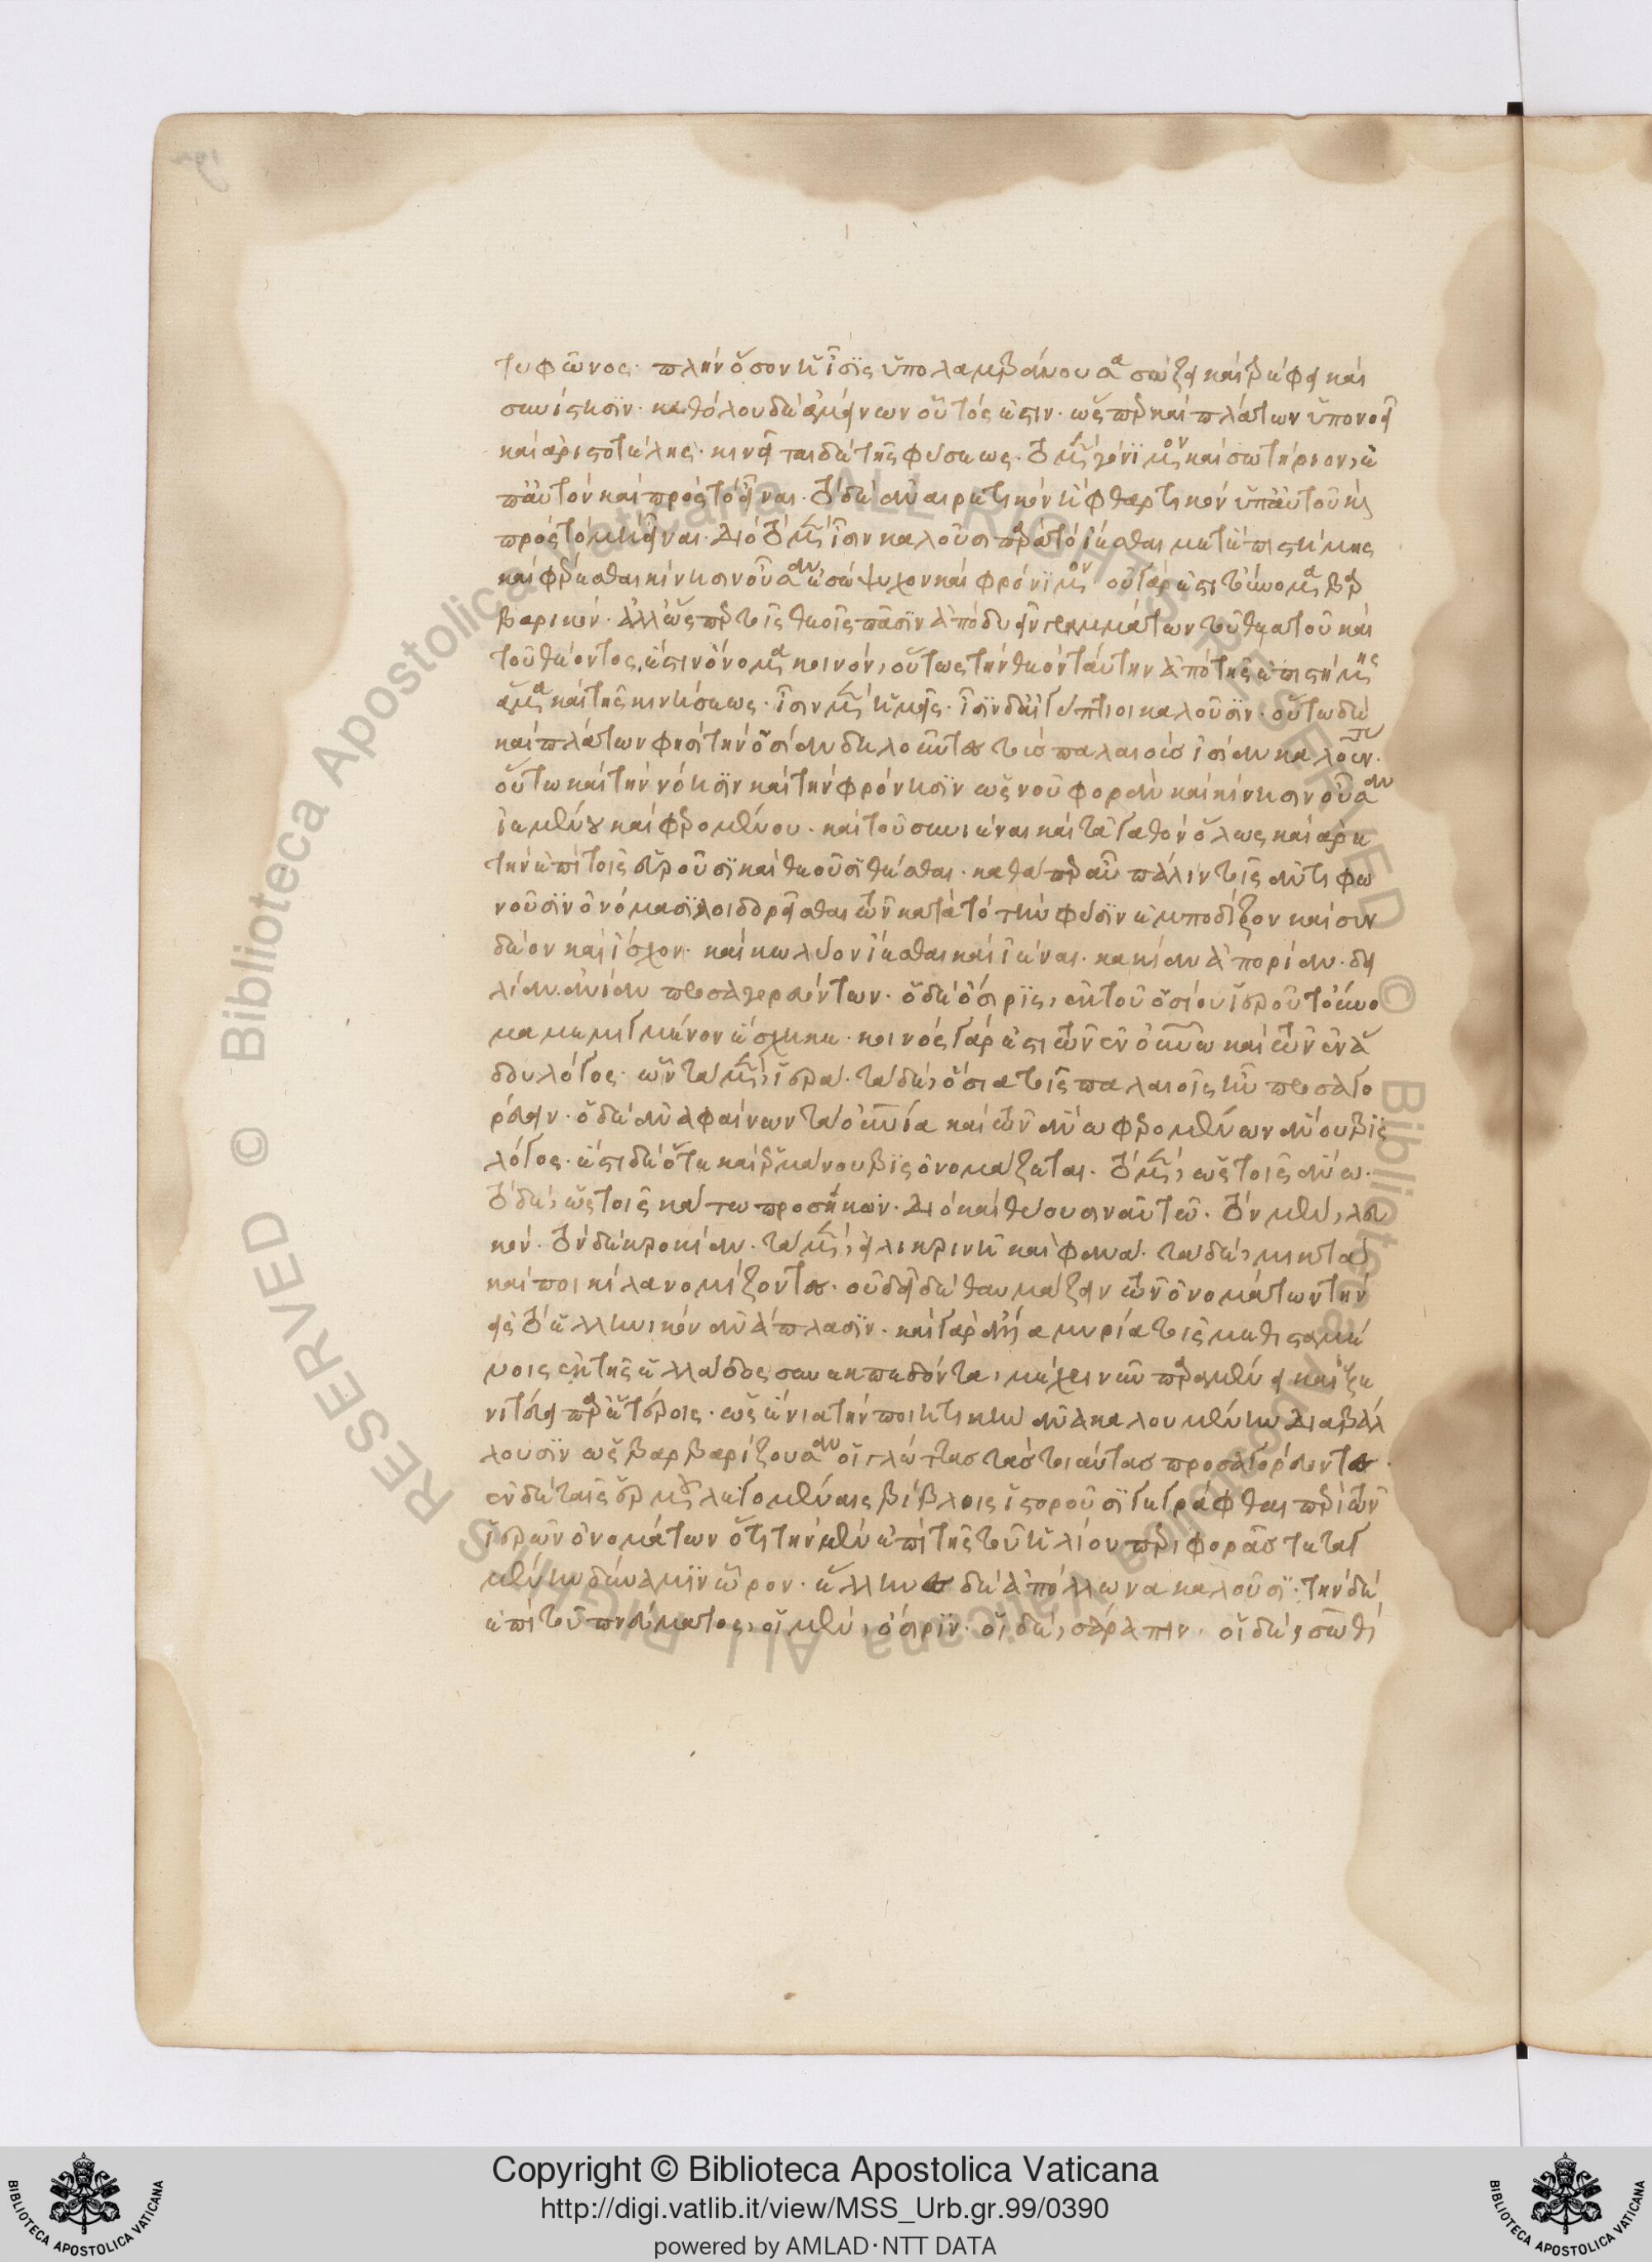 τυφῶνος· πλὴν ὅσον ἡ ἶσις ὑπολαμβάνουσα σώζει καὶ τρέφει καὶ
συνίστησιν· καθόλου δὲ ἀμείνων οὗτός ἐστιν· ὥσπερ καὶ πλάτων ὑπονοεῖ
καὶ ἀριστοτέλης· κινεῖται δὲ τῆς φύσεως· τὸ μὲν γόνιμον καὶ σωτήριον, ἐ
π αὐτὸν καὶ πρὸς τὸ εἶναι· τὸ δὲ ἀναιρετικὸν ἢ φθαρτικὸν ὑπ αὐτοῦ κ(αὶ)
πρὸς τὸ μὴ εἶναι· διὸ τὸ μὲν ἶσιν καλοῦσι παρὰ τὸ ἵεσθαι μετ ἐπιστήμης
καὶ φέρεσθαι κίνησιν οὖσαν ἔμψυχον καὶ φρόνιμον· οὐ γὰρ ἐστι τοὔνομα βαρ
βαρικόν· ἀλλ ὥσπερ τοῖς θεοῖς πᾶσιν ἀπὸ δυεῖν γραμμάτων τοῦ θεατοῦ καὶ
τοῦ θέοντος, ἔστιν ὄνομα κοινόν, οὕτως τὴν θεὸν ταύτην ἀπὸ τῆς ἐπιστήμης
ἅμα καὶ τῆς κινήσεως· ἶσιν μὲν ἡμεῖς· ἶσιν δ αἰγύπτιοι καλοῦσιν· οὕτω δὲ
καὶ πλάτων φησὶ τὴν ὁσίαν δηλοῦντας τοὺς παλαιοὺς ἰσίαν καλοῦσιν·
οὕτω καὶ τὴν νόησιν καὶ τὴν φρόνησιν ὡς νοῦ φορὰν καὶ κίνησιν οὖσαν
ἱεμένου καὶ φερομένου· καὶ τοῦ συνιέναι καὶ τἀγαθὸν ὅλως καὶ ἀρε
τὴν ἐπὶ τοῖς εὑροῦσι καὶ θεοῦσι θέσθαι· καθάπερ αὖ πάλιν τοῖς ἀντιφω
νοῦσιν ὀνόμασι λοιδορεῖσθαι τῶν κατὰ τὸ τὴν φύσιν ἐμποδίζον καὶ συν
δέον καὶ ἴσχον· καὶ κωλύον ἵεσθαι καὶ ἰέναι· κακίαν ἀπορίαν· δει
λίαν ἀνίαν προσαγορευόντων· ὁ δὲ ὄσιρις, ἐκ τοῦ ὁσίου ἱεροῦ τοὔνο
μα μεμιγμένον ἔσχηκε· κοινὸς γάρ ἐστι τῶν ἐν οὐρανῶ καὶ τῶν ἐν ἅ
δου λόγος· ὧν τὰ μὲν, ἱερὰ· τὰ δὲ, ὅσια τοῖς παλαιοῖς ἦν προσαγο
ρεύειν· ὁ δὲ ἀναφαίνων τὰ οὐράνια καὶ τῶν ἄνω φερομένων ἄνουβις
λόγος· ἔστι δὲ ὅτε καὶ ἑρμάνουβις ὀνομάζεται· τὸ μὲν, ὡς τοῖς ἄνω·
τὸ δὲ, ὡς τοῖς κάτω προσήκων· διὸ καὶ θύουσιν αὐτῶ· τὸν μὲν, λευ
κόν· τὸν δὲ κροκίαν· τὰ μὲν, εἰλικρινῆ καὶ φανὰ· τὰ δὲ, μικτὰ
καὶ ποικίλα νομίζοντες· οὐ δεῖ δὲ θαυμάζειν τῶν ὀνομάτων τὴν
εἰς τὸ ἑλληνικὸν ἀνάπλασιν· καὶ γὰρ ἄλλα μυρία τοῖς μεθισταμέ
νοις ἐκ τῆς ἑλλάδος συνεκπεσόντα, μέχρι νῦν παραμένει καὶ ξε
νιτεύει παρ ἑτέροις· ὡς ἔνια τὴν ποιητικὴν ἀνακαλουμένην διαβάλ
λουσιν ὡς βαρβαρίζουσαν οἱ γλώττας τὰς τοιαύτας προσαγορεύοντες·
ἐν δὲ ταῖς ἑρμοῦ λεγομέναις βίβλοις ἱστοροῦσι γεγράφθαι περὶ τῶν
ἱερῶν ὀνομάτων ὅτι τὴν μὲν ἐπὶ τῆς τοῦ ἡλίου περιφορᾶς τεταγ
μένην δύναμιν ὧρον· ἕλληνες δὲ ἀπόλλωνα καλοῦσι· τὴν δὲ
ἐπὶ τοῦ πνεύματος, οἱ μὲν, ὄσιριν· οἱ δὲ, σάραπιν· οἱ δὲ, σῶθι
Copyright © Biblioteca Apostolica Vaticana
http://digi.vatlib.it/view/MSS_Urb.gr.99/0390
powered by AMLAD·NTT DATA